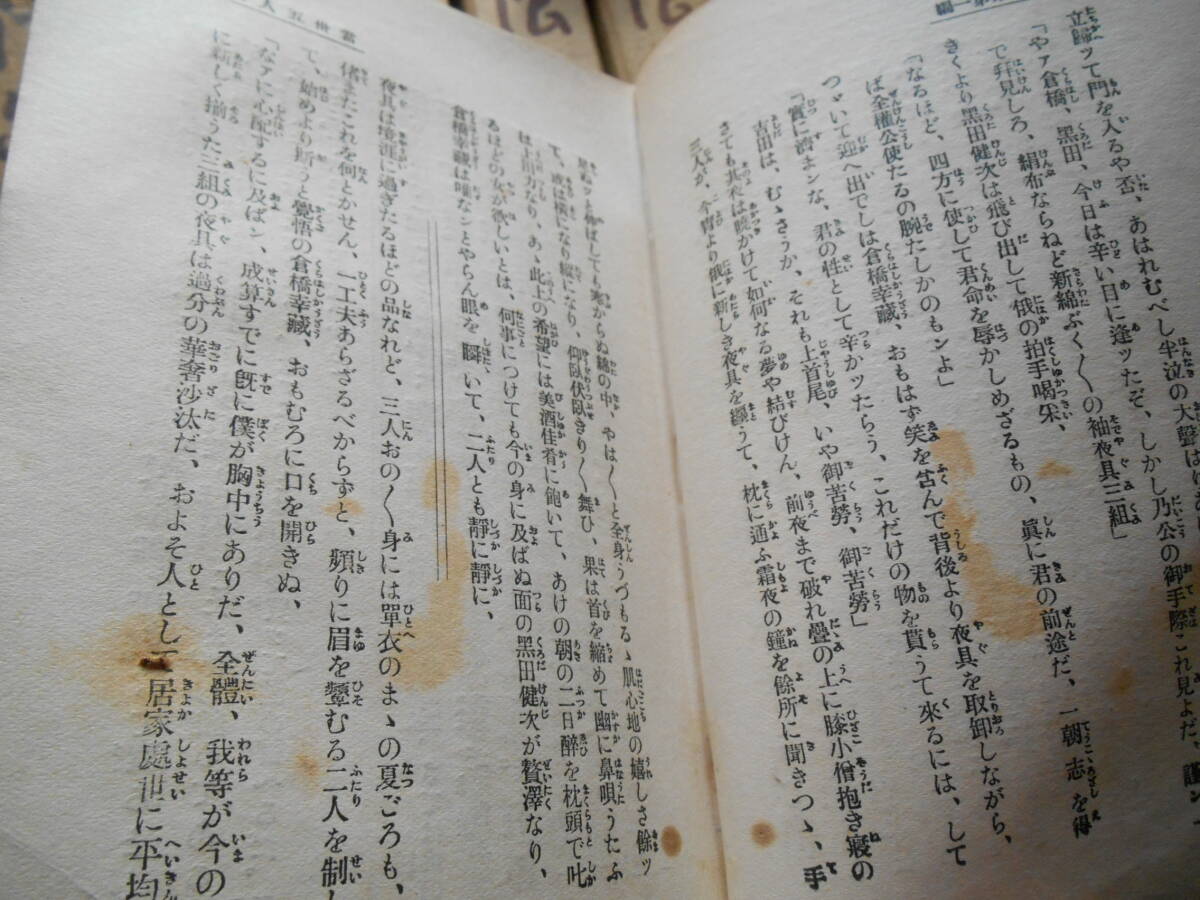 第一編
立歸ッて門を入るや否、あはれむべし半泣の大聲はげ
「やァ倉橋、黒田、今日は辛い日に逢ッたぞ、しかし乃公の御手際これ見よだ、謹ン
で拜見しろ、絹布ならねど新綿ぶく〳〵の袖夜具三組」
きくより黒田健次は飛び出して俄の拍手喝采、
「なるほど、四方に使して君命を辱かしめざるもの、眞に君の前途だ、一朝志を得
ば全權公使たるの腕たしかのもンよ」
つゞいて迎へ出でしは倉橋幸藏、おもはず笑を含んで背後より夜具を取卸しながら、
「實に濟まンな、君の性として辛かッたらう、これだけの物を貰うて來るには、して
吉田は、むゝさうか、それも上首尾、いや御苦勞、御苦勞」
さても其夜は曉かけて如何なる夢や結びけん、前夜まで破れ疊の上に膝小僧抱き寢の
三人が、今宵より俄に新しき夜具を纒うて、枕に通ふ霜夜の鐘を餘所に聞きつゝ、手
當世五人
足ぬッと伸ばしても寒からぬ綿の中、やは〳〵と全身うづもるゝ肌心地の嬉しさ餘ッ
て、或は横になり縱になり、仰臥伏臥きり〳〵舞ひ、果は首を縮めて幽に鼻唄うたふ
は上田力なり、あゝ此上の希望には美酒佳肴に飽いて、あけの朝の二日醉を枕頭で叱
るほどの女が欲しいとは、何事につけても今の身に及ばぬ面の黒田健次が贅澤なり、
倉橋幸藏は唯なことやらん眼を瞬いて、二人とも靜に靜に、
夜具は境涯に過ぎたるほどの品なれど、三人おの〳〵身には單衣のまゝの夏ごろも、
偖またこれを何とかせん、一工夫あらざるべからずと、頻りに眉を顰むる二人を制し
て、始めより斯うと覺悟の倉橋幸藏、おもむろに口を開きぬ、
「なァに心配するに及ばン、成算すでに既に僕が胸中にありだ、全體、我等が今の
に新しく揃うた三組の夜具は過分の華奢沙汰だ、およそ人として居家處世に平均